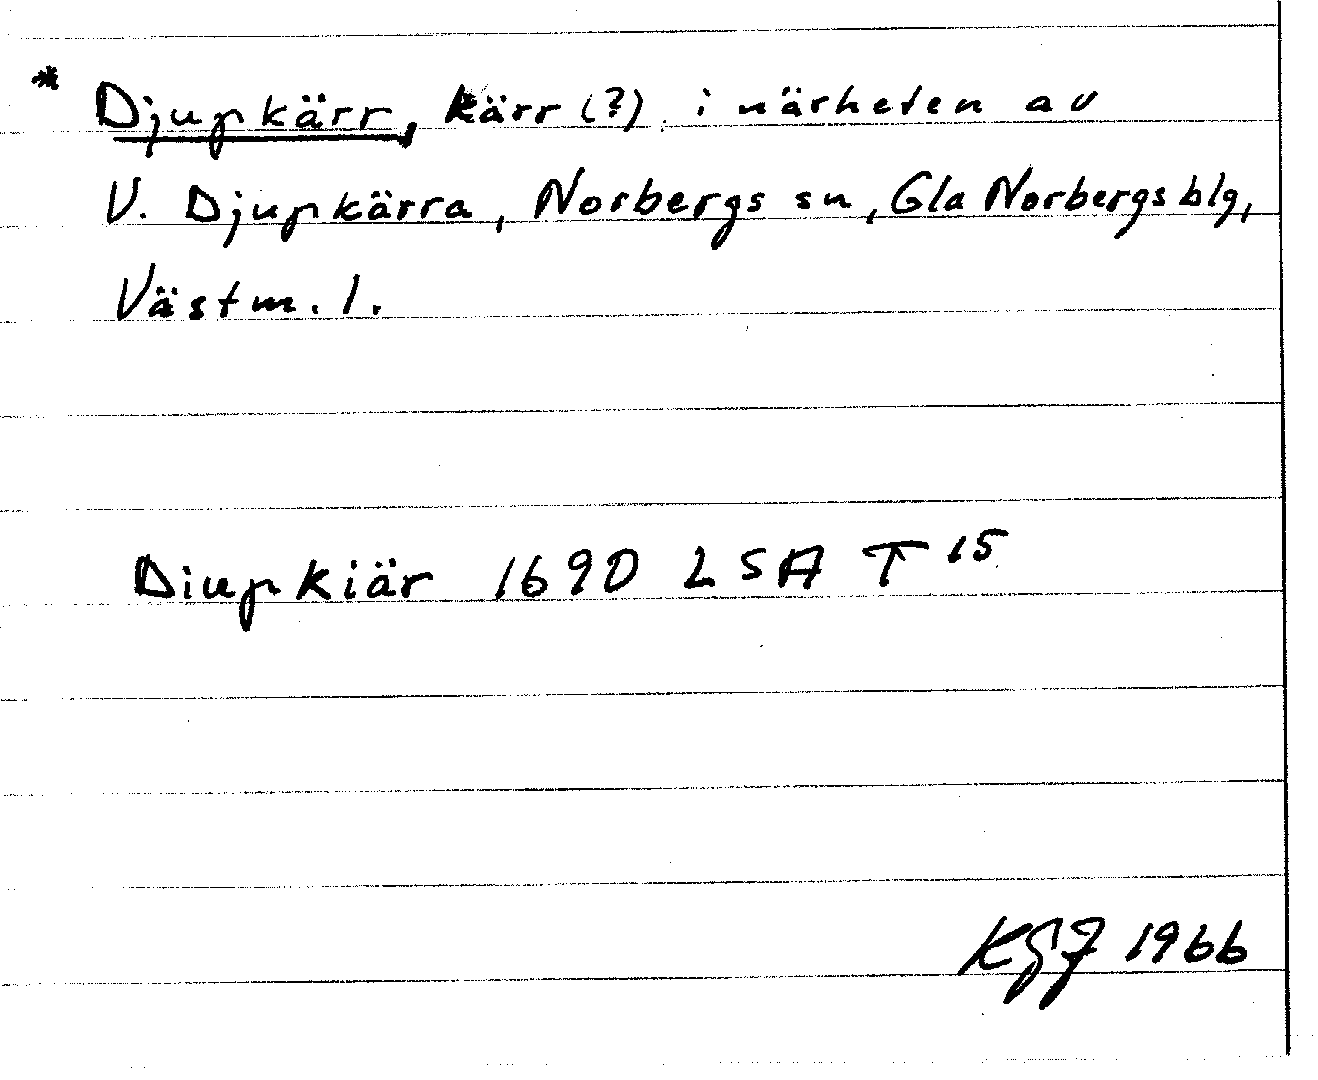 * Djupkärr, kärr (?) i närheten av
V. Djupkärra, Norbergs sn, Gla Norbergs blg,
Västm. l.
Diupkiär 1690 LSA T 15
KGJ 1966